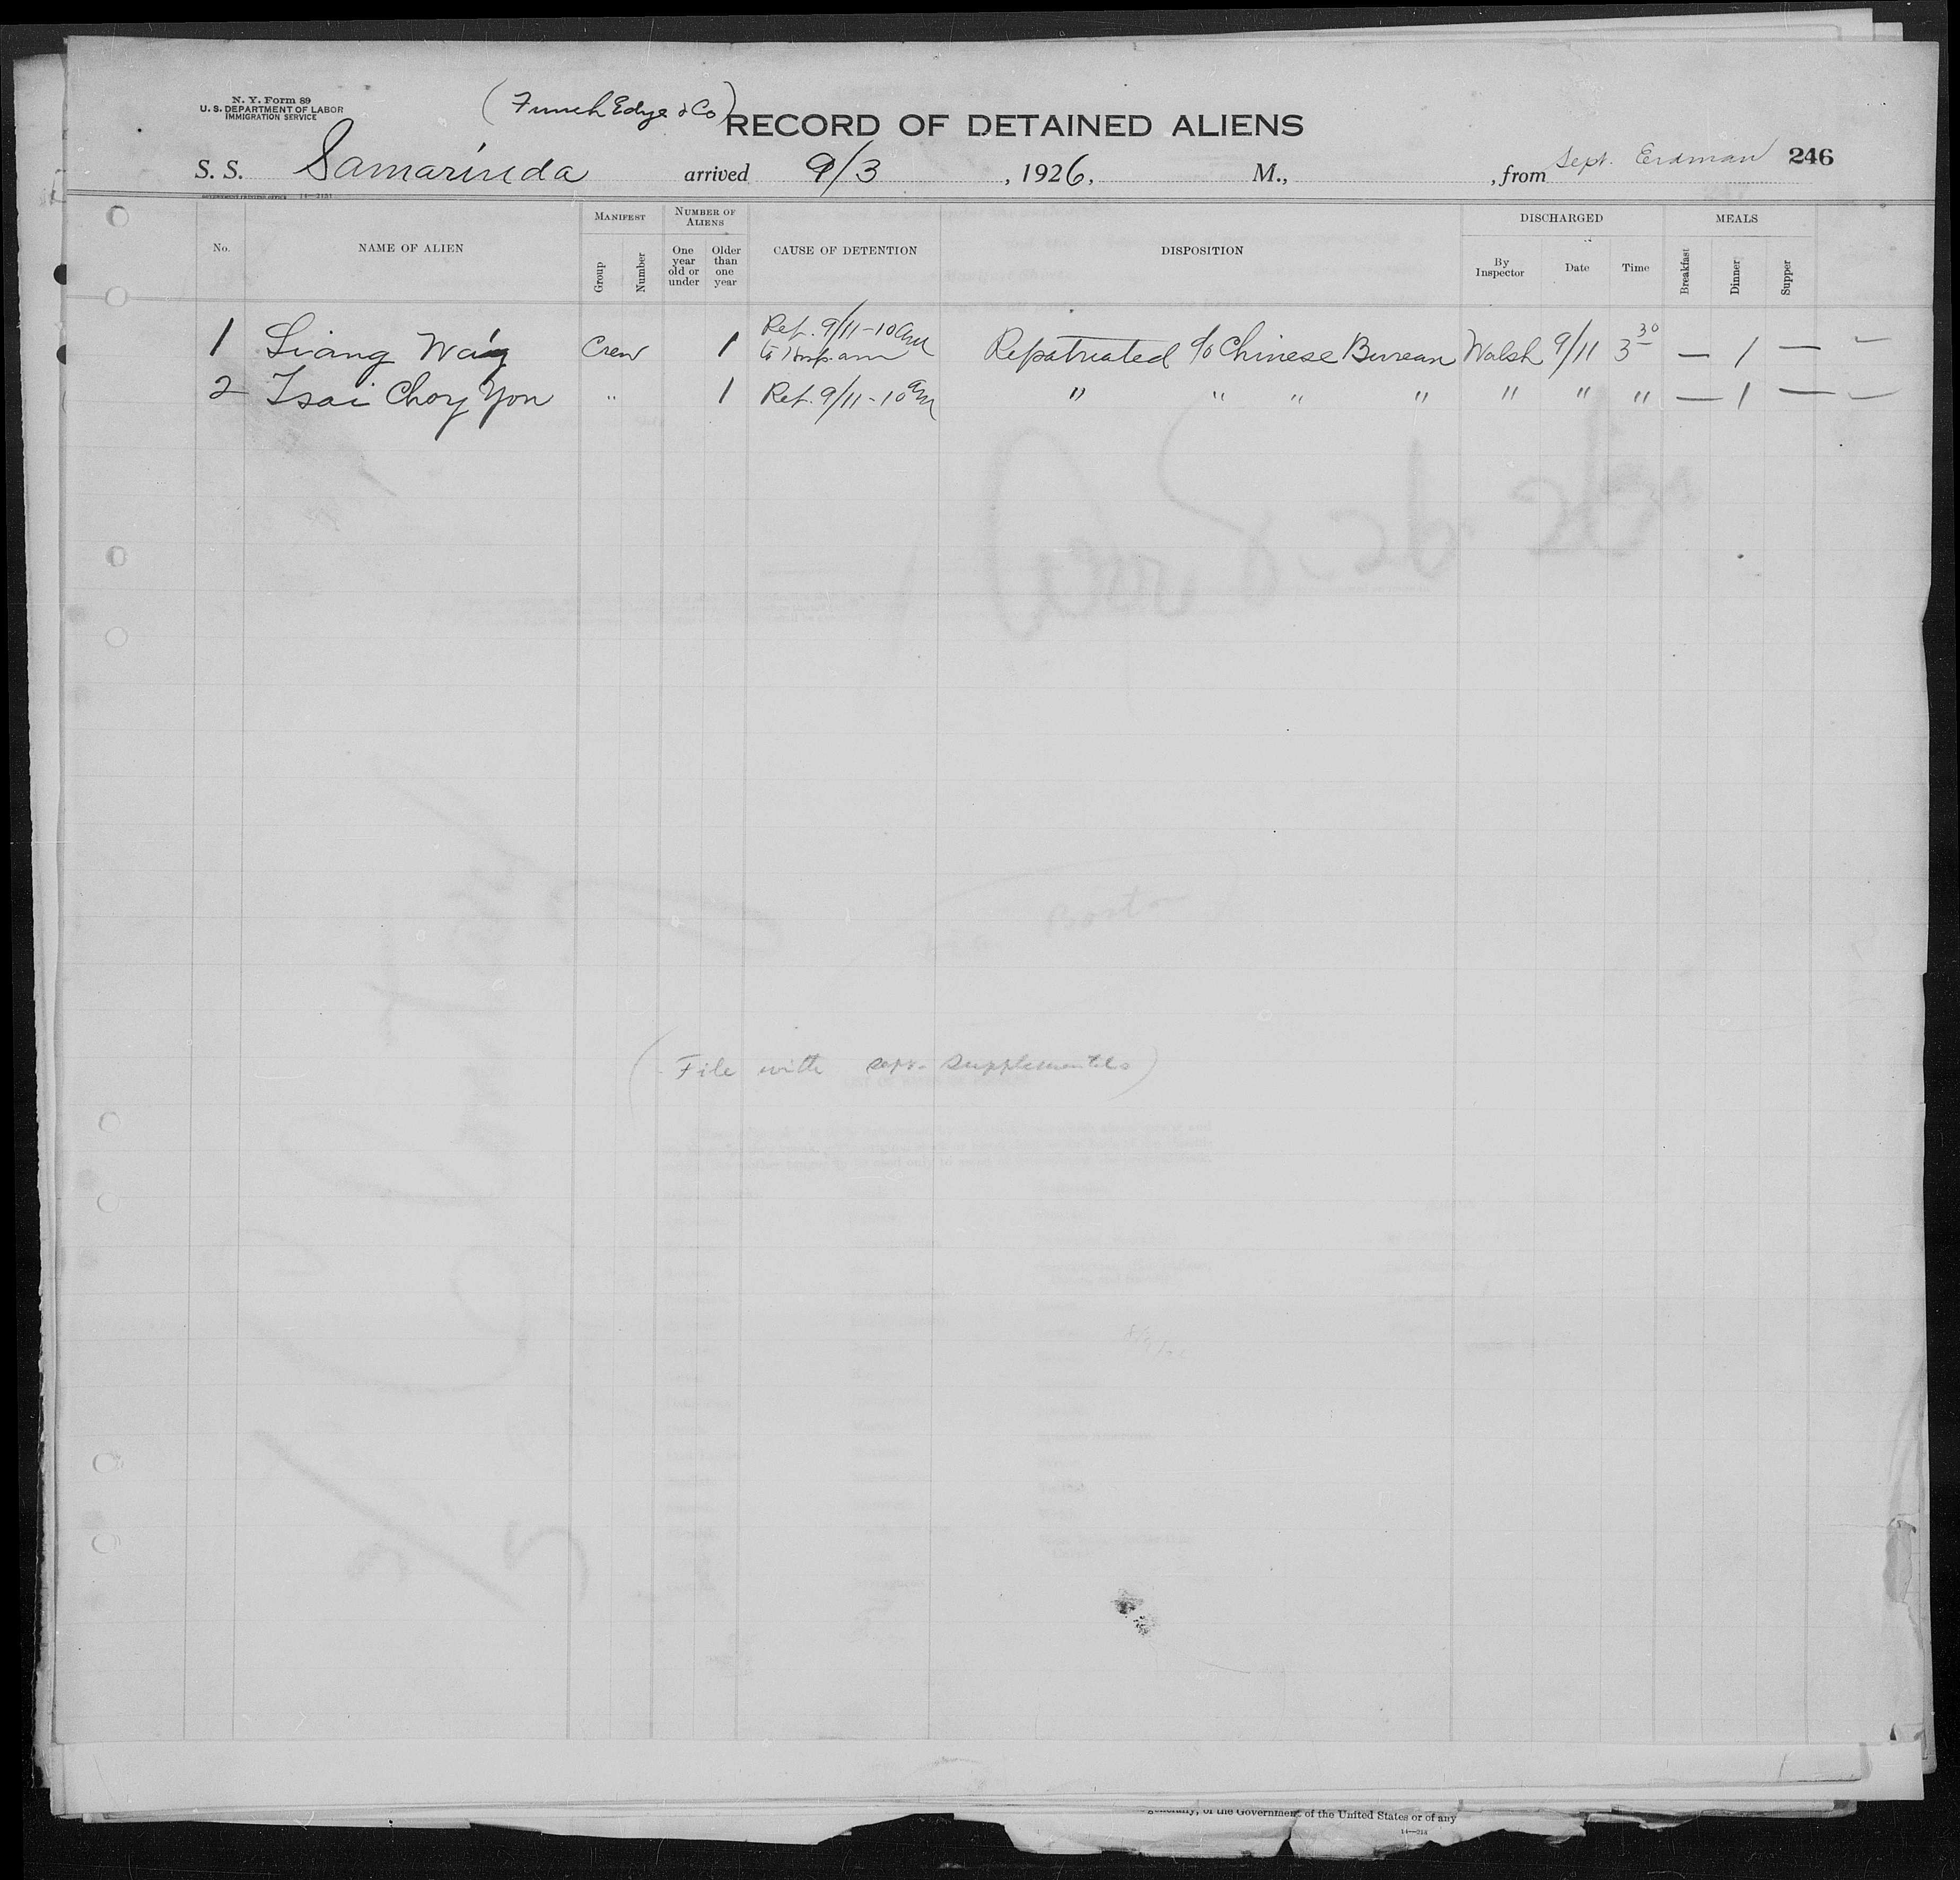 N. Y. Form 89
U. S. DEPARTMENT OF LABOR
IMMIGRATION SERVICE
(Funch Edye & Co)
RECORD OF DETAINED ALIENS
S. S. Samarinda arrived 9/3, 1926, M., , from Sept. Erdman 246
14—2151
No. NAME OF ALIEN MANIFEST Group Number NUMBER OF ALIENS One year old or under Older than one year CAUSE OF DETENTION DISPOSITION DISCHARGED By Inspector Date Time MEALS Breakfast Dinner Supper
1 Liang Way Crew 1 Ret. 9/11-10am Repatriated c/o Chinese Bureau Walsh 9/11 3 30 — 1 — —
2 Tsai Choy Yon " 1 Ret. 9/11-10am " " " " " " " — 1 — —
Boston
(File with sept. supplementals)
generally, of the Government of the United States or of any
14—218